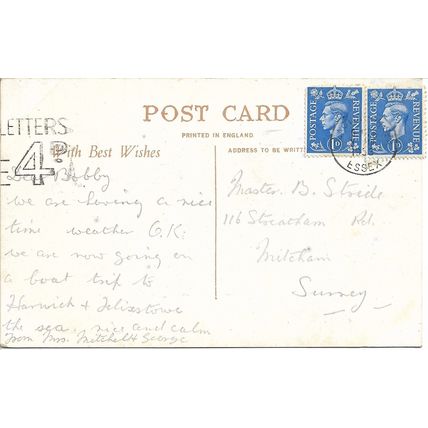 POST CARD
PRINTED IN ENGLAND
LETTERS
4D
With Best Wishes
ADDRESS TO BE WRITTE
POSTAGE REVENUE
1D
POSTAGE REVENUE
1D
ESSEX
Bobby
we are having a nice
time weather O.K.
we are now going on
a boat trip to
Harwich & Felixstowe
the sea nice and calm
From Mrs. Mitchell & George
Master B. Stride
116 Streatham Rd.
Mitcham
Surrey